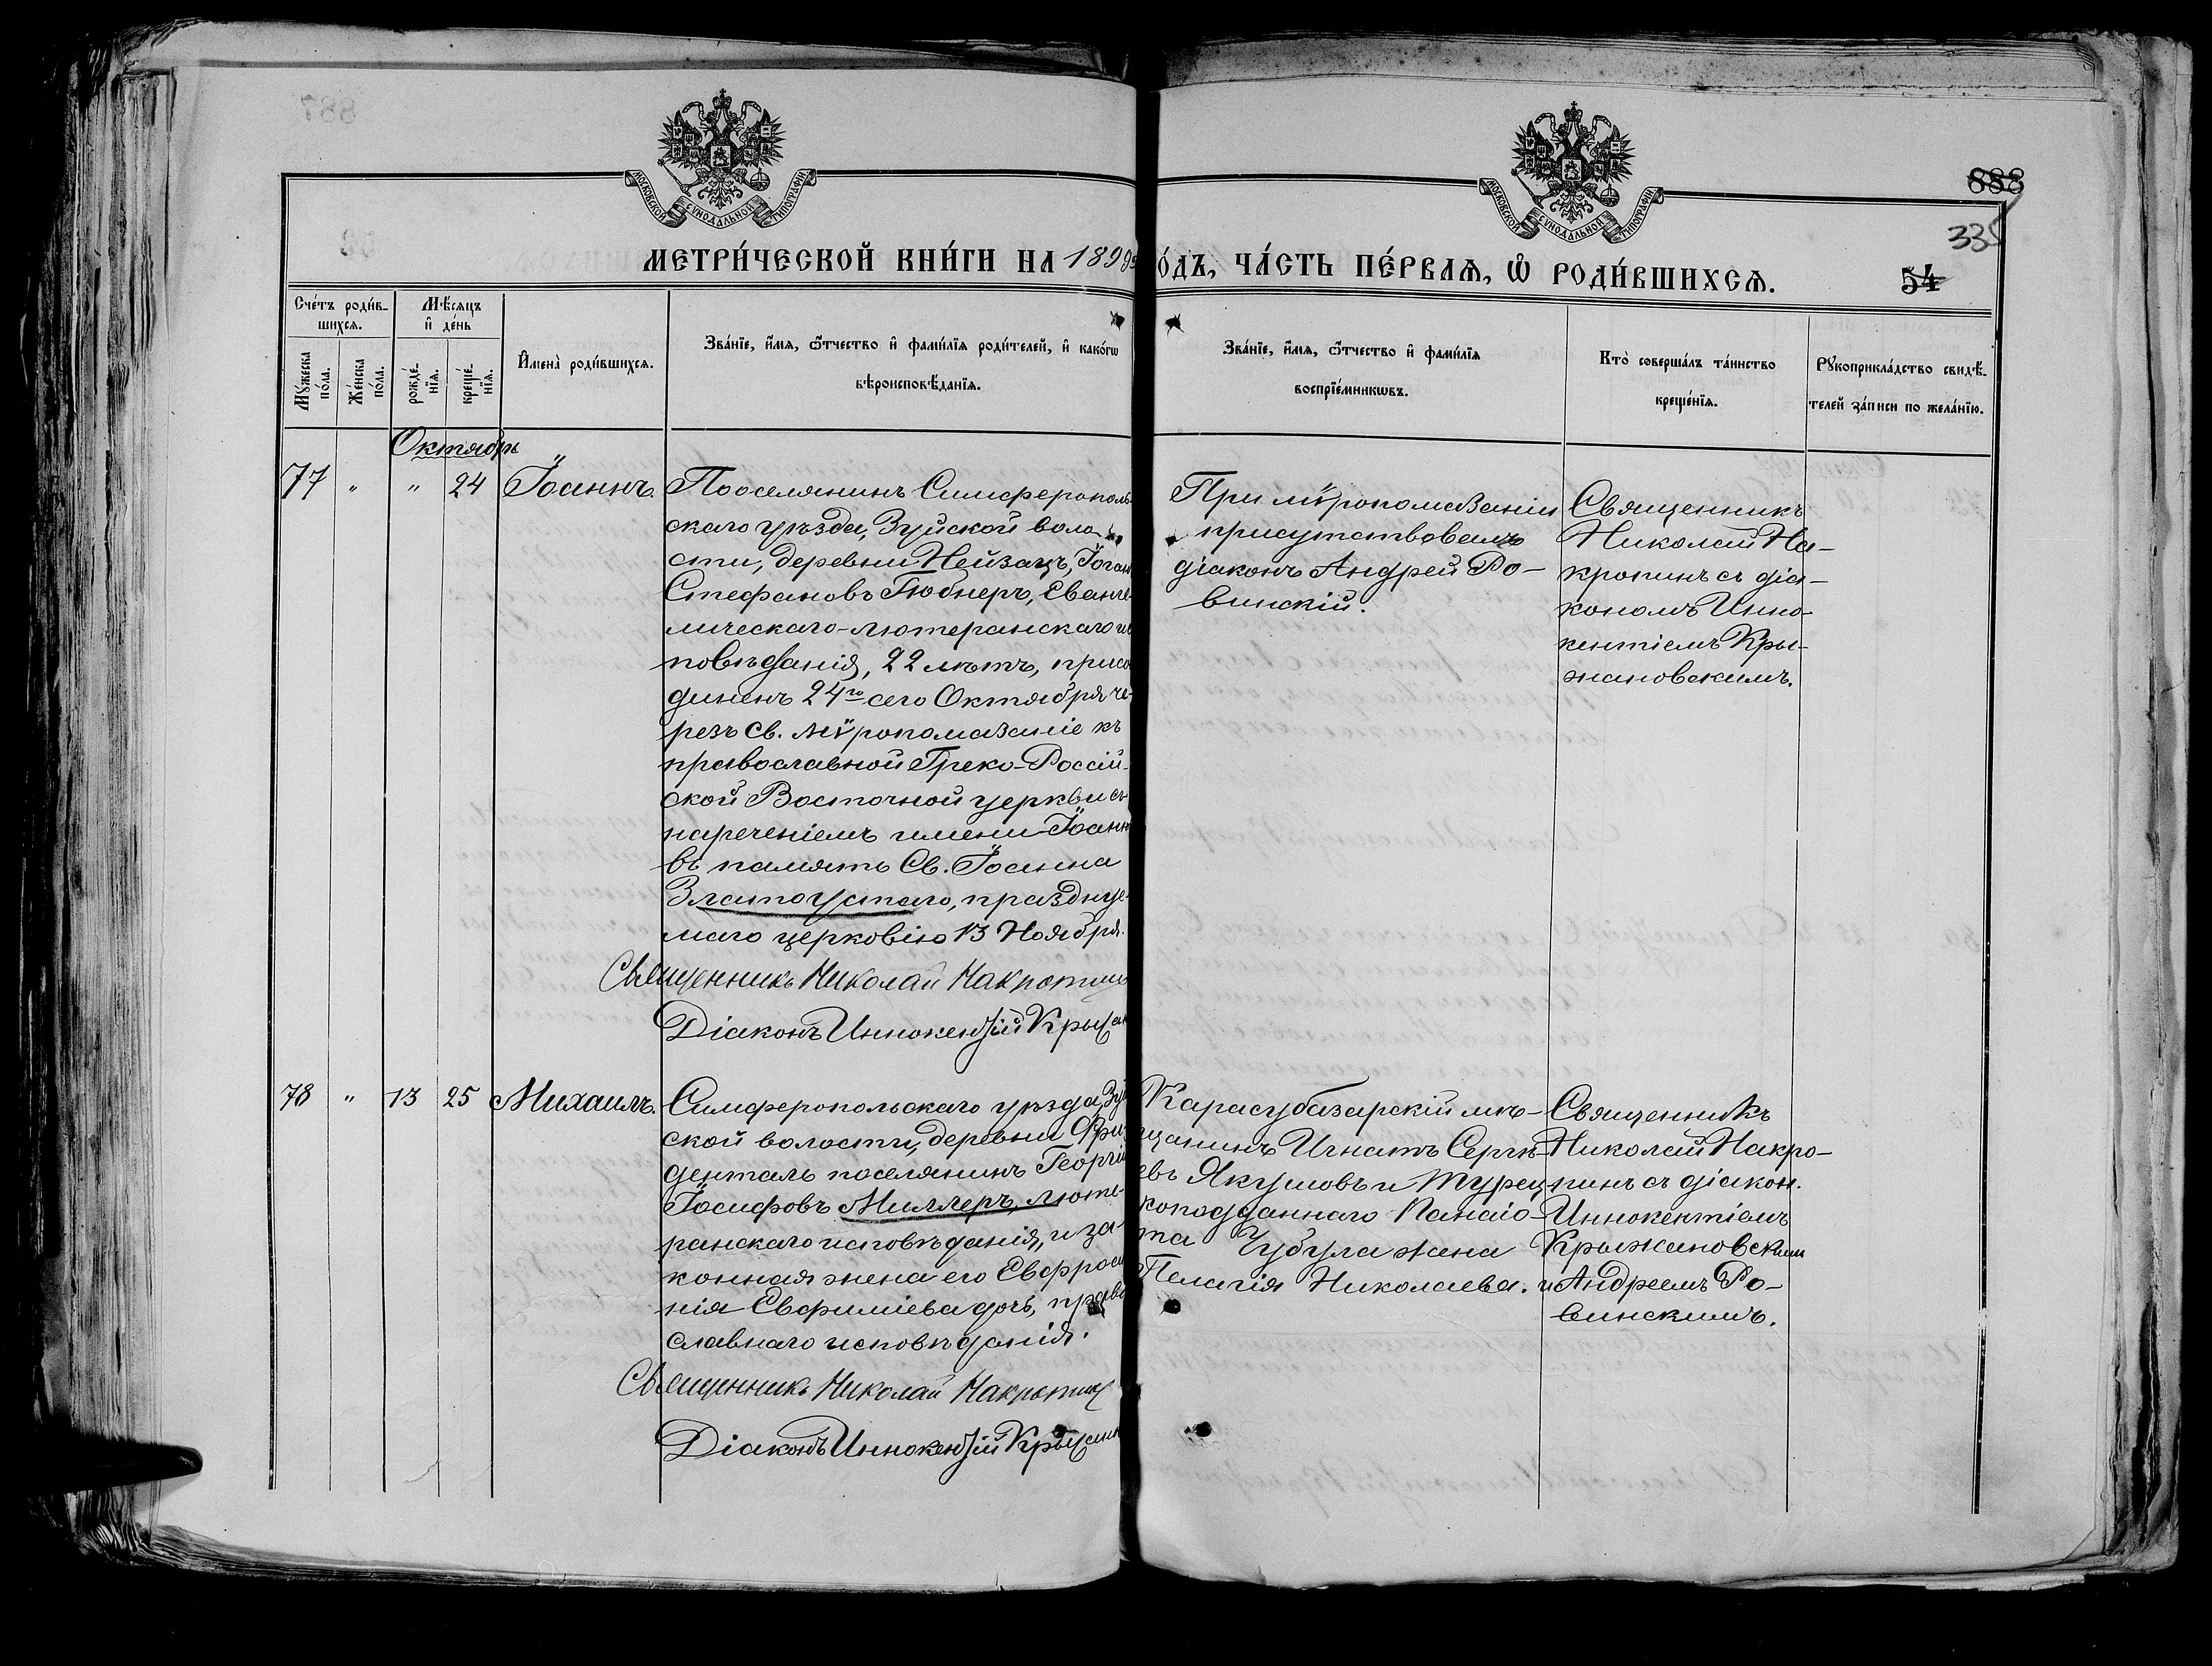 МОСКОВСКОЙ СѴНОДАЛЬНОЙ ТИПОГРАФИИ
МОСКОВСКОЙ СѴНОДАЛЬНОЙ ТИПОГРАФИИ
887
888
335
54
МЕТРИ́ЧЕСКОЙ КНИ́ГИ НА 1899
О́ДЪ, ЧА́СТЬ ПЕ́РВАѦ, Ѽ РОДИ́ВШИХСѦ.
Сче́тъ роди́в-
шихсѧ.
Мѣ́сѧцъ
и҆ де́нь
Мꙋ́жеска по́ла.
Же́нска по́ла.
рожде́-
нїѧ.
креще́-
нїѧ.
И҆мена̀ роди́вшихсѧ.
Зва́нїе, и҆́мѧ, ѻ҆́тчество и҆ фами́лїѧ роди́телей, и҆ како́гѡ
вѣроисповѣ́данїѧ.
Зва́нїе, и҆́мѧ, ѻ҆́тчество и҆ фами́лїѧ
воспрїе́мникѡвъ.
Кто̀ соверша́лъ та́инство
креще́нїѧ.
Рꙋкоприкла́дство свидѣ́-
телей за́писи по жела́нїю.
Октябрь
77 " " 24 Іоаннъ.
Поселянинъ Симферополь
скаго уѣзда, Зуйской воло-
сти, деревни Нейзацъ, Іоган
Стефановъ Гюбнеръ, Еванге-
лическаго-лютеранскаго ис
повѣданія, 22 лѣтъ, присо
диненъ 24го сего Октября че-
резъ св. мѵропомазаніе къ
православной Греко-Россій-
ской Восточной церкви съ
нареченіемъ имени Іоанн
въ память Св. Іоанна
Златоустаго, праздну́е-
маго церковію 13 Ноября.
Священникъ Николай Накропинъ
Діаконъ Иннокентій Крыжан
При мѵропомазаніи
присутствовалъ
діаконъ Андрей Ро-
винскій.
Священникъ
Николай На-
кропинъ съ діа-
кономъ Инно-
кентіемъ Кры-
жановскимъ.
78 " 13 25 Михаилъ.
Симферопольскаго уѣзда, Зуй
ской волости, деревни Фри
денталь поселянинъ Георгій
Іосифовъ Миллеръ, люте-
ранскаго исповѣданія, и за-
конная жена его Евфроси
нія Евфиміева дочь, право
славнаго исповѣданія.
Священникъ Николай Накропинъ
Діаконъ Иннокентій Крыжан
Карасубазарскій мѣ-
щанинъ Игнатъ Сергѣ-
евъ Якушовъ и Турец
коподданнаго Панаіо-
та Чубула жена
Пелагія Николаева.
Священникъ
Николай Накро-
пинъ съ діакон.
Иннокентіемъ
Крыжановским
и Андреемъ Ро-
винскимъ.